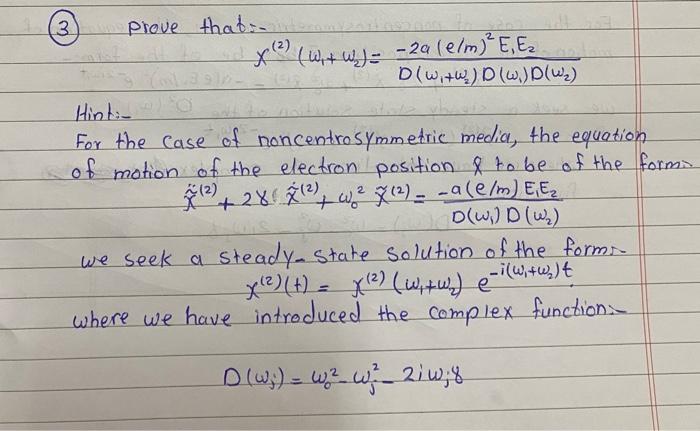 3 prove that:-
x^(2) (ω₁+ω₂) = -2a (e/m)² E₁E₂ / D(ω₁+ω₂) D(ω₁) D(ω₂)
Hint:-
For the case of noncentrosymmetric media, the equation
of motion of the electron position x̃ to be of the form:-
ẍ̃^(2) + 2γ ẋ̃^(2) + ω₀² x̃^(2) = -a(e/m) E₁E₂ / D(ω₁) D(ω₂)
we seek a steady-state solution of the form:-
x^(2)(t) = x^(2) (ω₁+ω₂) e^-i(ω₁+ω₂)t
where we have introduced the complex function:-
D(ωⱼ) = ω₀² - ωⱼ² - 2iωⱼγ